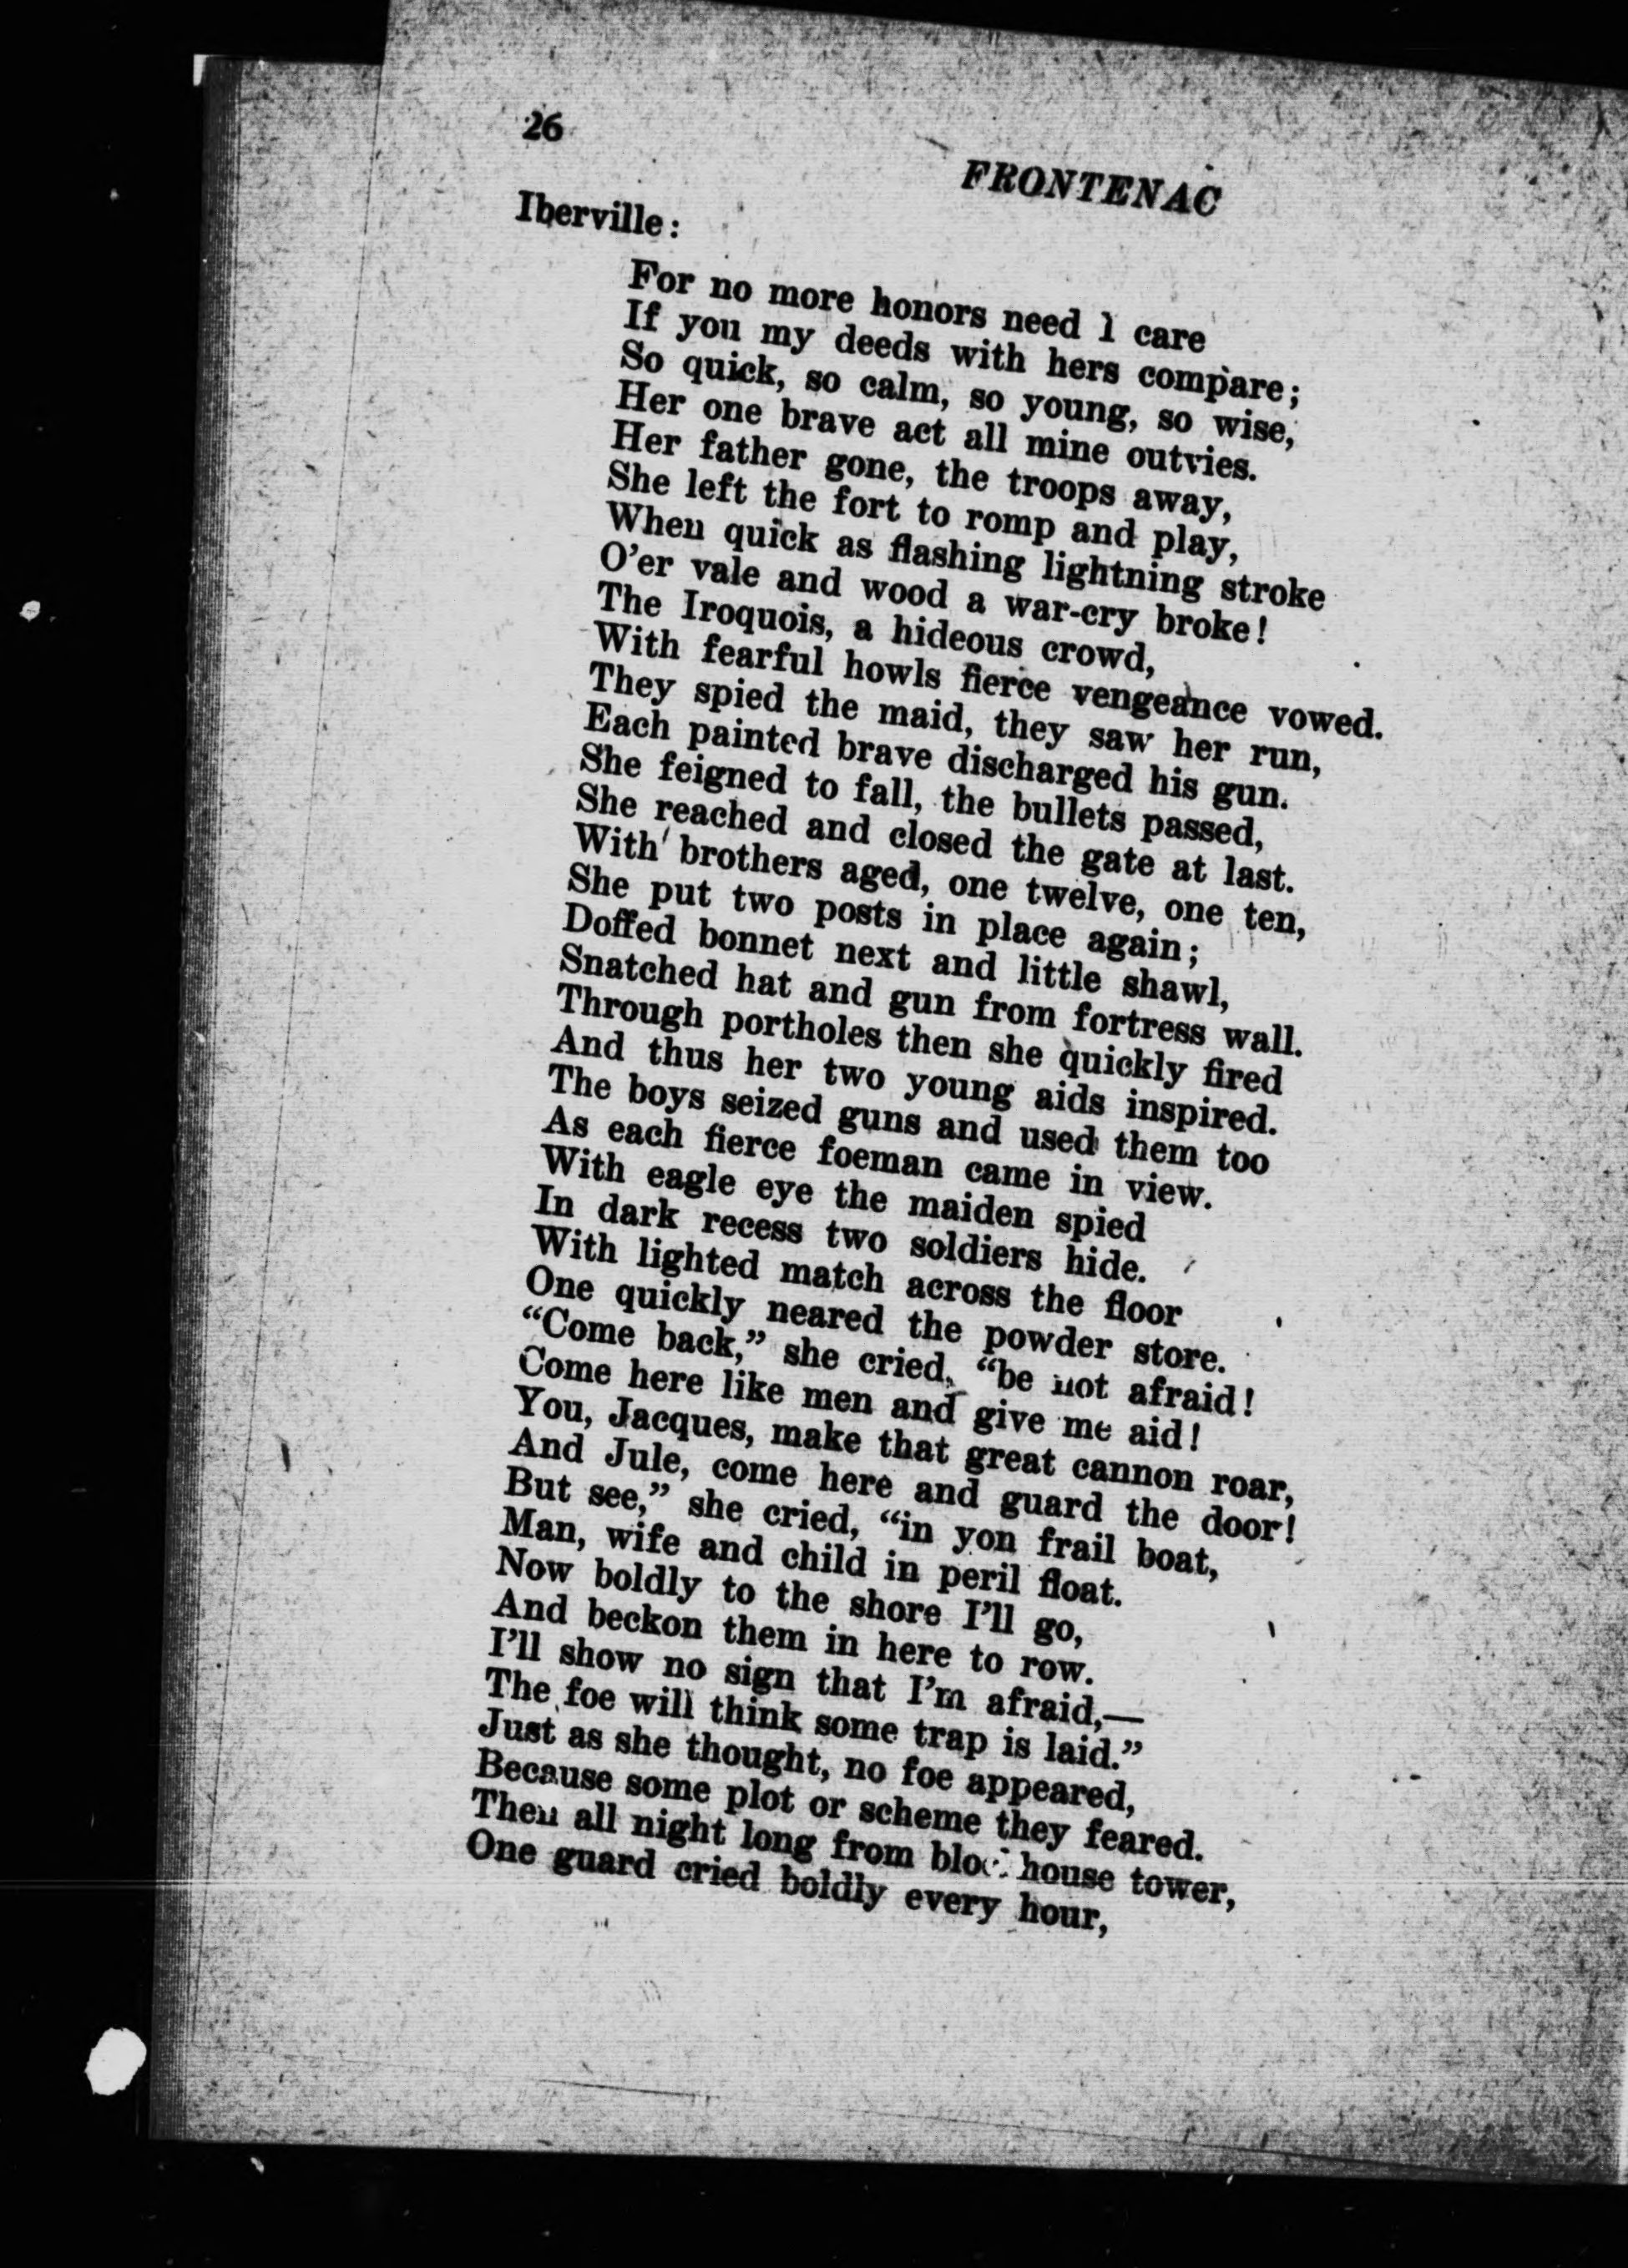 26
FRONTENAC
Iberville:
For no more honors need I care
If you my deeds with hers compare;
So quick, so calm, so young, so wise,
Her one brave act all mine outvies.
Her father gone, the troops away,
She left the fort to romp and play,
When quick as flashing lightning stroke
O'er vale and wood a war-cry broke!
The Iroquois, a hideous crowd,
With fearful howls fierce vengeance vowed.
They spied the maid, they saw her run,
Each painted brave discharged his gun.
She feigned to fall, the bullets passed,
She reached and closed the gate at last.
With brothers aged, one twelve, one ten,
She put two posts in place again;
Doffed bonnet next and little shawl,
Snatched hat and gun from fortress wall.
Through portholes then she quickly fired
And thus her two young aids inspired.
The boys seized guns and used them too
As each fierce foeman came in view.
With eagle eye the maiden spied
In dark recess two soldiers hide.
With lighted match across the floor
One quickly neared the powder store.
"Come back," she cried, "be not afraid!
Come here like men and give me aid!
You, Jacques, make that great cannon roar,
And Jule, come here and guard the door!
But see," she cried, "in yon frail boat,
Man, wife and child in peril float.
Now boldly to the shore I'll go,
And beckon them in here to row.
I'll show no sign that I'm afraid,—
The foe will think some trap is laid."
Just as she thought, no foe appeared,
Because some plot or scheme they feared.
Then all night long from block house tower,
One guard cried boldly every hour,